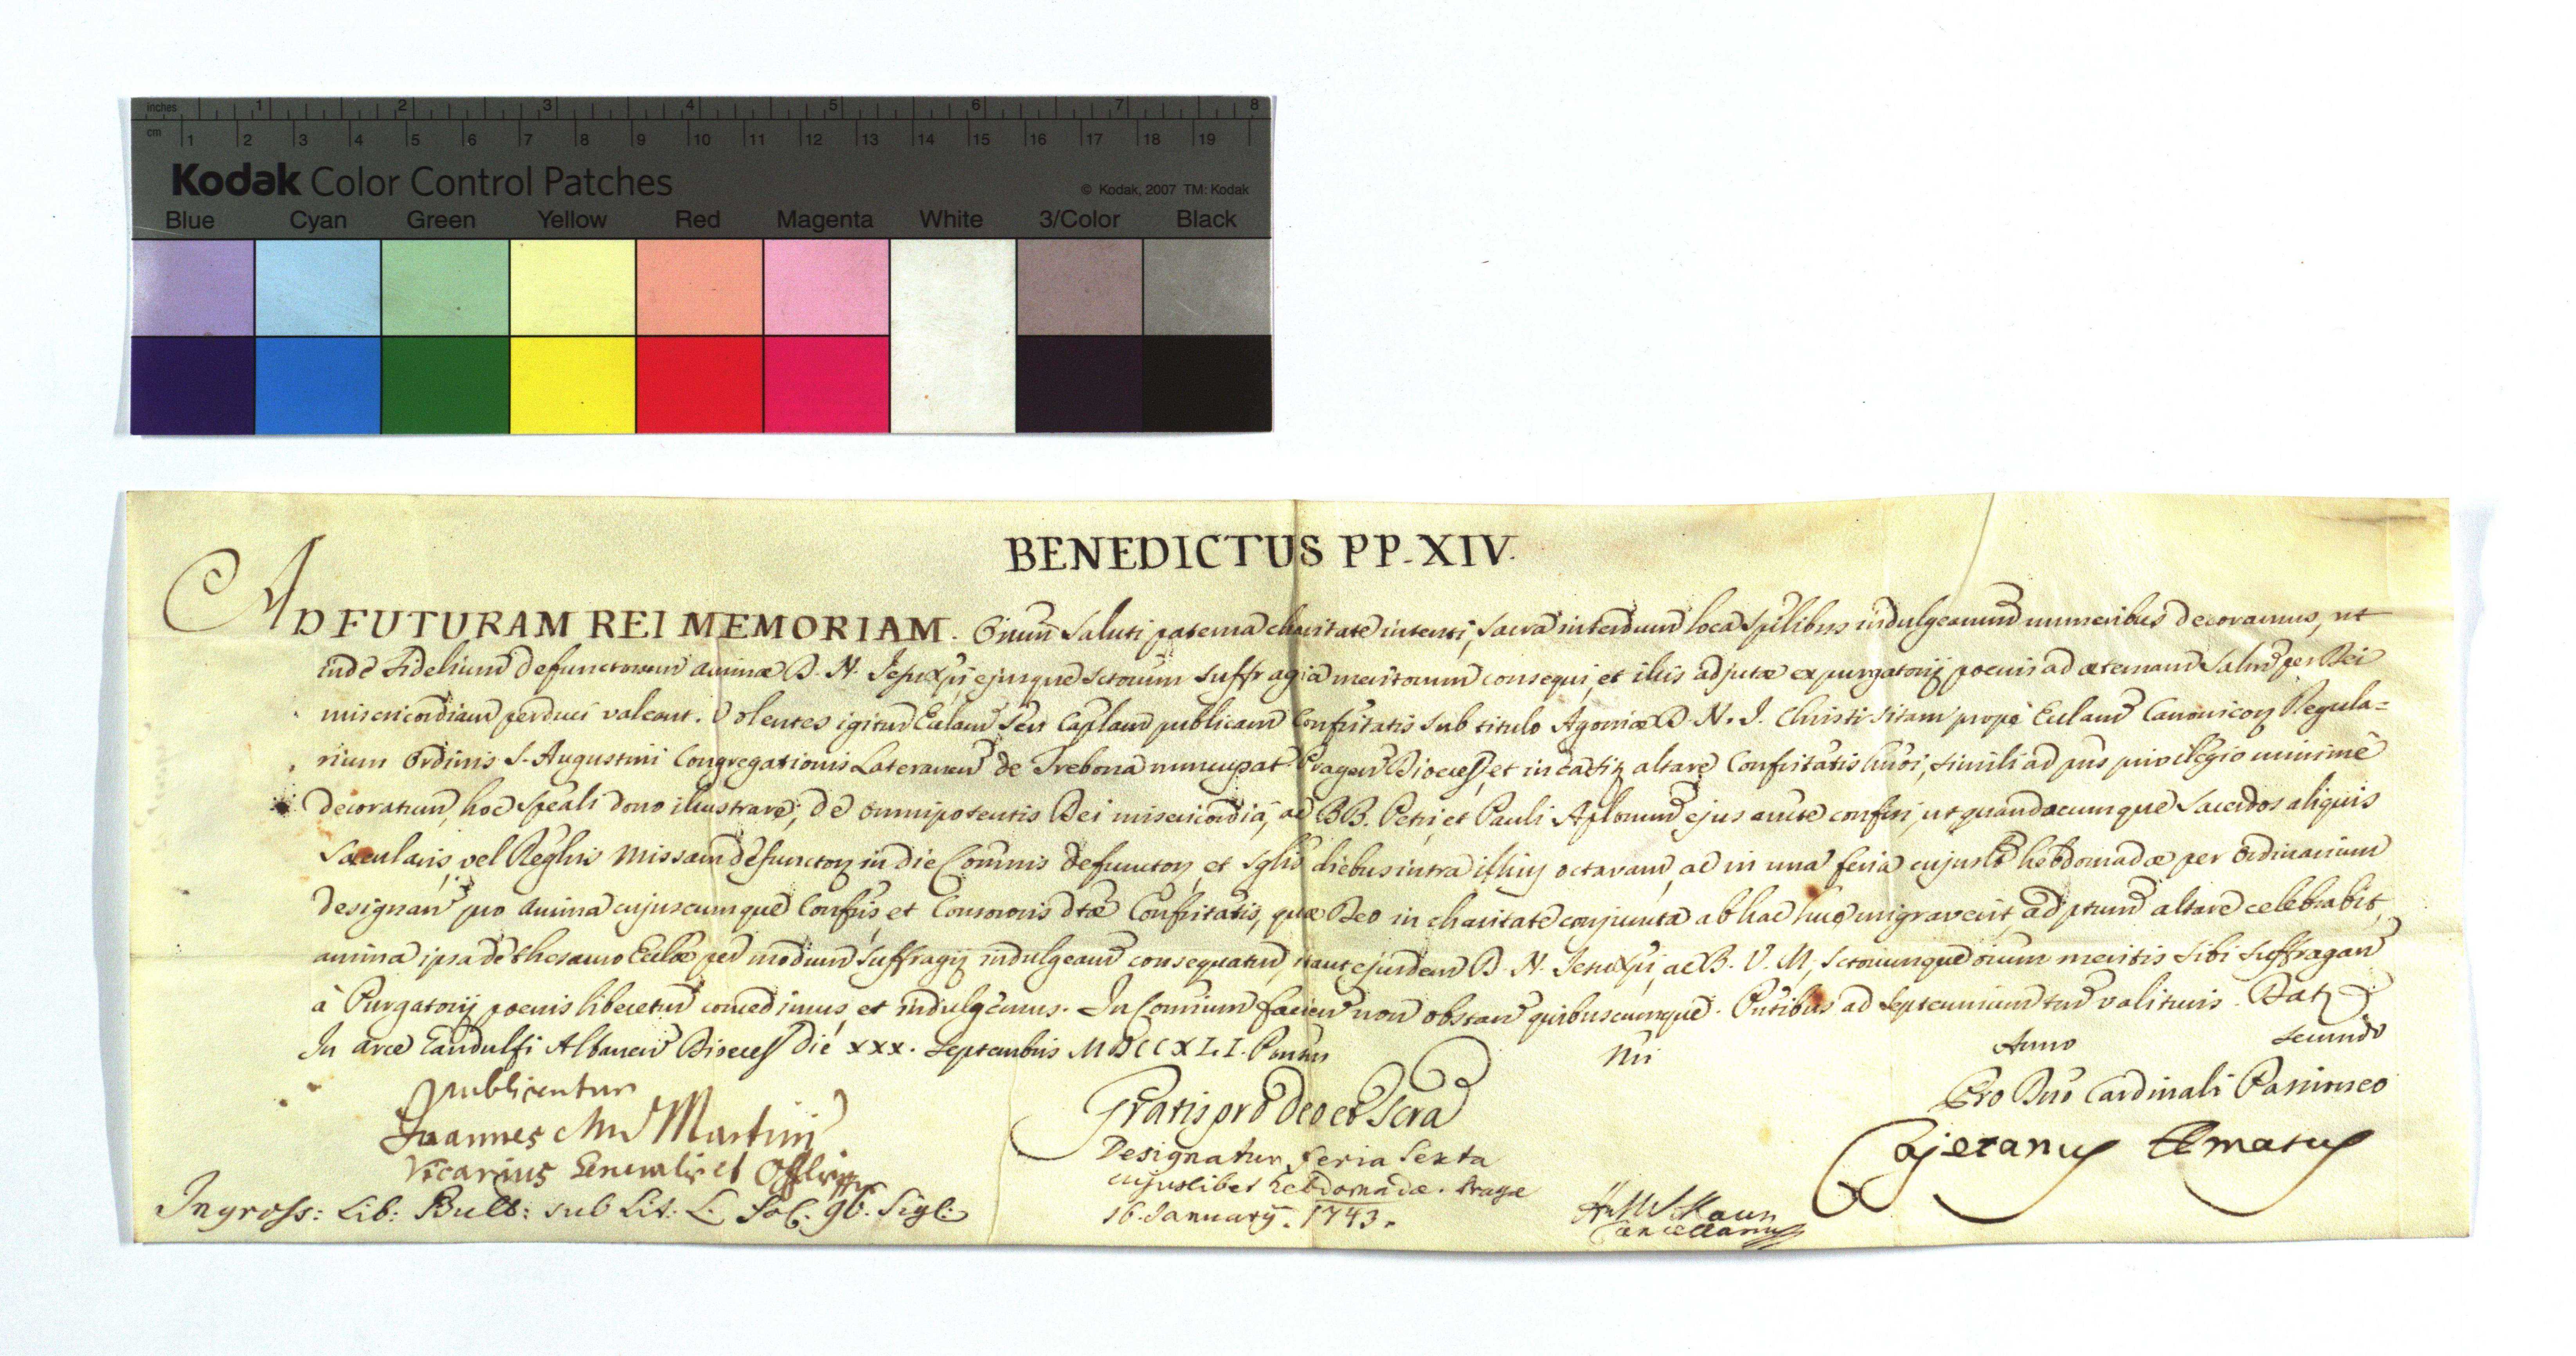 inches 1 2 3 4 5 6 7 8
cm 1 2 3 4 5 6 7 8 9 10 11 12 13 14 15 16 17 18 19
Kodak Color Control Patches © Kodak, 2007 TM: Kodak
Blue Cyan Green Yellow Red Magenta White 3/Color Black
BENEDICTUS PP. XIV.
AD FUTURAM REI MEMORIAM. Oium Saluti paterna charitate intenti, sacra interdum loca Spilibus indulgeanum muneribus decoramus, ut
inde Fidelium defunctorum animæ D. N. Jesu Xpi ejusque Sctorum suffragia meritorum consequi, et illis adjutæ ex purgatorij poenis ad æternam Salut̄ per Dei
misericordiam perduci valeant. Volentes igitur Ecclam seu Caplam publicam Confritatis sub titulo Agoniæ D. N. J. Christi sitam prope Ecclam Canonicor̄ Regula=
rium Ordinis S. Augustini Congregationis Lateranen̄ de Trebona nuncupat Pragen̄ Dioeces, et in ea sit̄ altare Confritatis hmōi, simili ad pn̄s privilegio minime
decoratum, hoc speāli dono illustrare, de omnipotentis Dei misericordia, ac BB. Petri et Pauli Aplorum ejus aucte confisi, ut quandocumque Sacerdos aliquis
Sæcularis, vel Reglris Missam defunctor̄ in die Com̄nis defunctor̄, et Sglis diebus intra illius octavam, ac in una feria cujuslt̄ hebdomadæ per Ordinarium
designan̄ pro anima cujuscumque Confris, et Consororis dtæ Confritatis, quæ Deo in charitate conjuncta ab hac luce migraverit, ad ptum̄ altare celebrabit,
anima ipsa de thesauro Ecclæ per modum suffragij indulgeanū consequatur, ita ut ejusdem D. N. Jesu Xpi, ac B. V. M., Sctorumque oium meritis sibi suffragan̄
à Purgatorij poenis liberetur concedimus, et indulgemus. In Con̄rium facien̄ non obstan̄ quibuscumque. Pn̄tibus ad Septennium tm̄ valituris. Dat̄
In arce Gandulfi Albanen̄ Dioeces die xxx. Septembris MDCCXLI. Pontūs Nri Anno Secundo
publicentur
Joannes Mau Martini
Vicarius Generalis et Offlis
Ingross: Lib: Bull: sub Lit: L. Fol: 96. Sigl:
Gratis pro Deo et Scra
Designatur feria Sexta
cujuslibet hebdomadæ. Pragæ
16. January. 1743.
Cancellarius
Pro Dno Cardinali Passioneo
Cajetanus Amatus